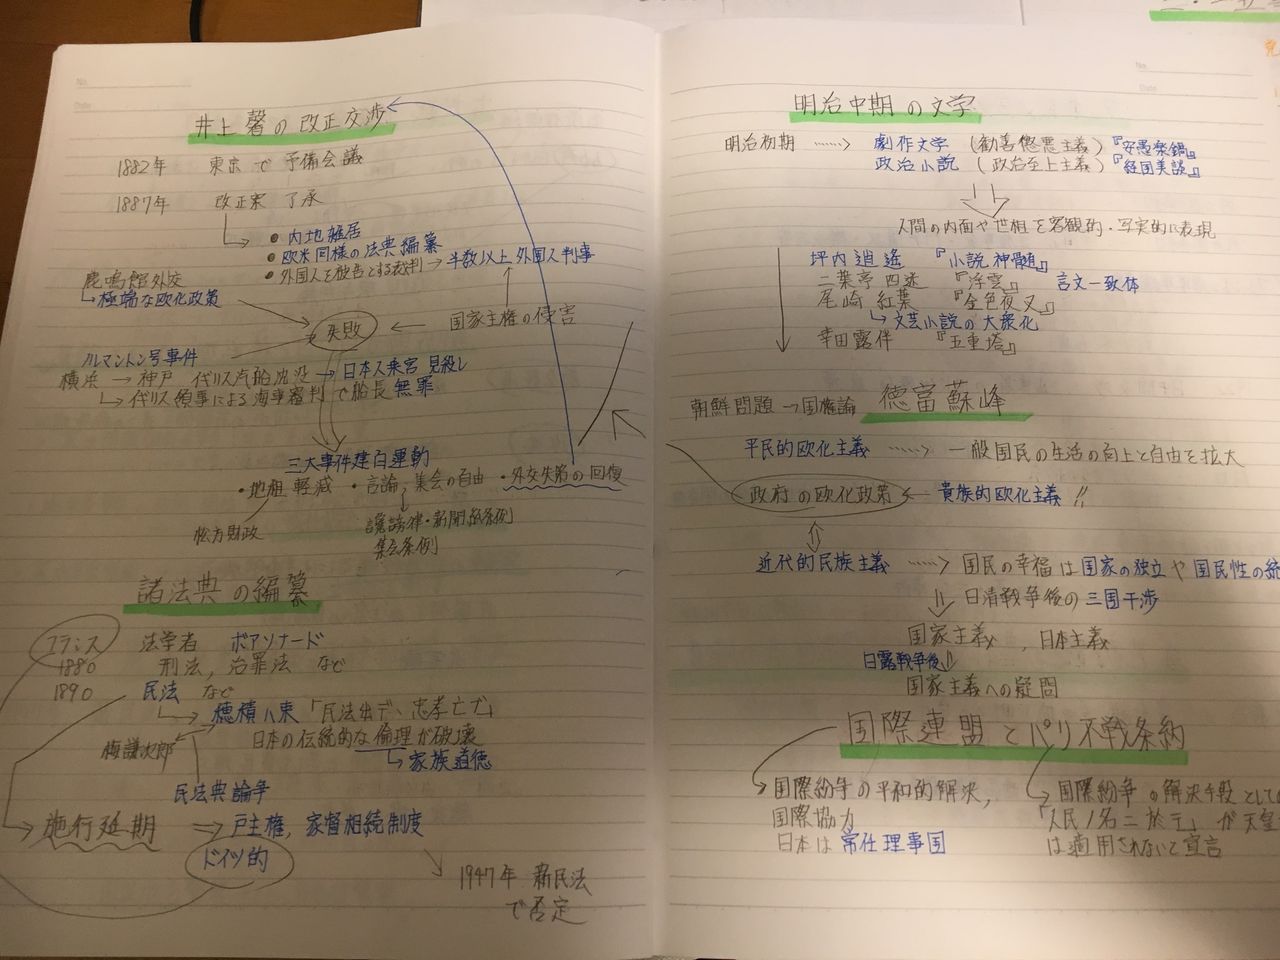 井上馨の改正交渉
1882年 東京で予備会議
1887年 改正案 了承
・内地雑居
・欧米同様の法典編纂
・外国人を被告とする裁判→半数以上外国人判事
鹿鳴館外交
↳極端な欧化政策
失敗 ← 国家主権の侵害
ノルマントン号事件
横浜→神戸 イギリス汽船沈没→日本人乗客 見殺し
↳イギリス領事による海事審判で船長無罪
三大事件建白運動
・地租軽減 ・言論,集会の自由 ・外交失策の回復
松方財政
讒謗律・新聞紙条例
集会条例
諸法典の編纂
フランス 法学者 ボアソナード
1880 刑法,治罪法 など
1890 民法 など
↳穂積八束「民法出デヽ忠孝亡ブ」
梅謙次郎
日本の伝統的な倫理が破壊
↳家族道徳
民法典論争
施行延期 ⇒ 戸主権,家督相続制度
ドイツ的
1947年 新民法
で否定
明治中期の文学
明治初期 ……› 劇作文学 (勧善懲悪主義)『安愚楽鍋』
政治小説 (政治至上主義)『経国美談』
人間の内面や世相を客観的・写実的に表現
坪内逍遙 『小説神髄』
二葉亭四迷 『浮雲』 言文一致体
尾崎紅葉 『金色夜叉』
↳文芸小説の大衆化
幸田露伴 『五重塔』
朝鮮問題→国権論 徳富蘇峰
平民的欧化主義 ……› 一般国民の生活の向上と自由を拡大
政府の欧化政策 ← 貴族的欧化主義!!
近代的民族主義 ……› 国民の幸福は国家の独立や国民性の統
日清戦争後の三国干渉
国家主義,日本主義
日露戦争後
国家主義への疑問
国際連盟とパリ不戦条約
国際紛争の平和的解決,
国際協力
日本は常任理事国
国際紛争の解決手段として
「人民ノ名ニ於テ」が天皇
は適用されないと宣言